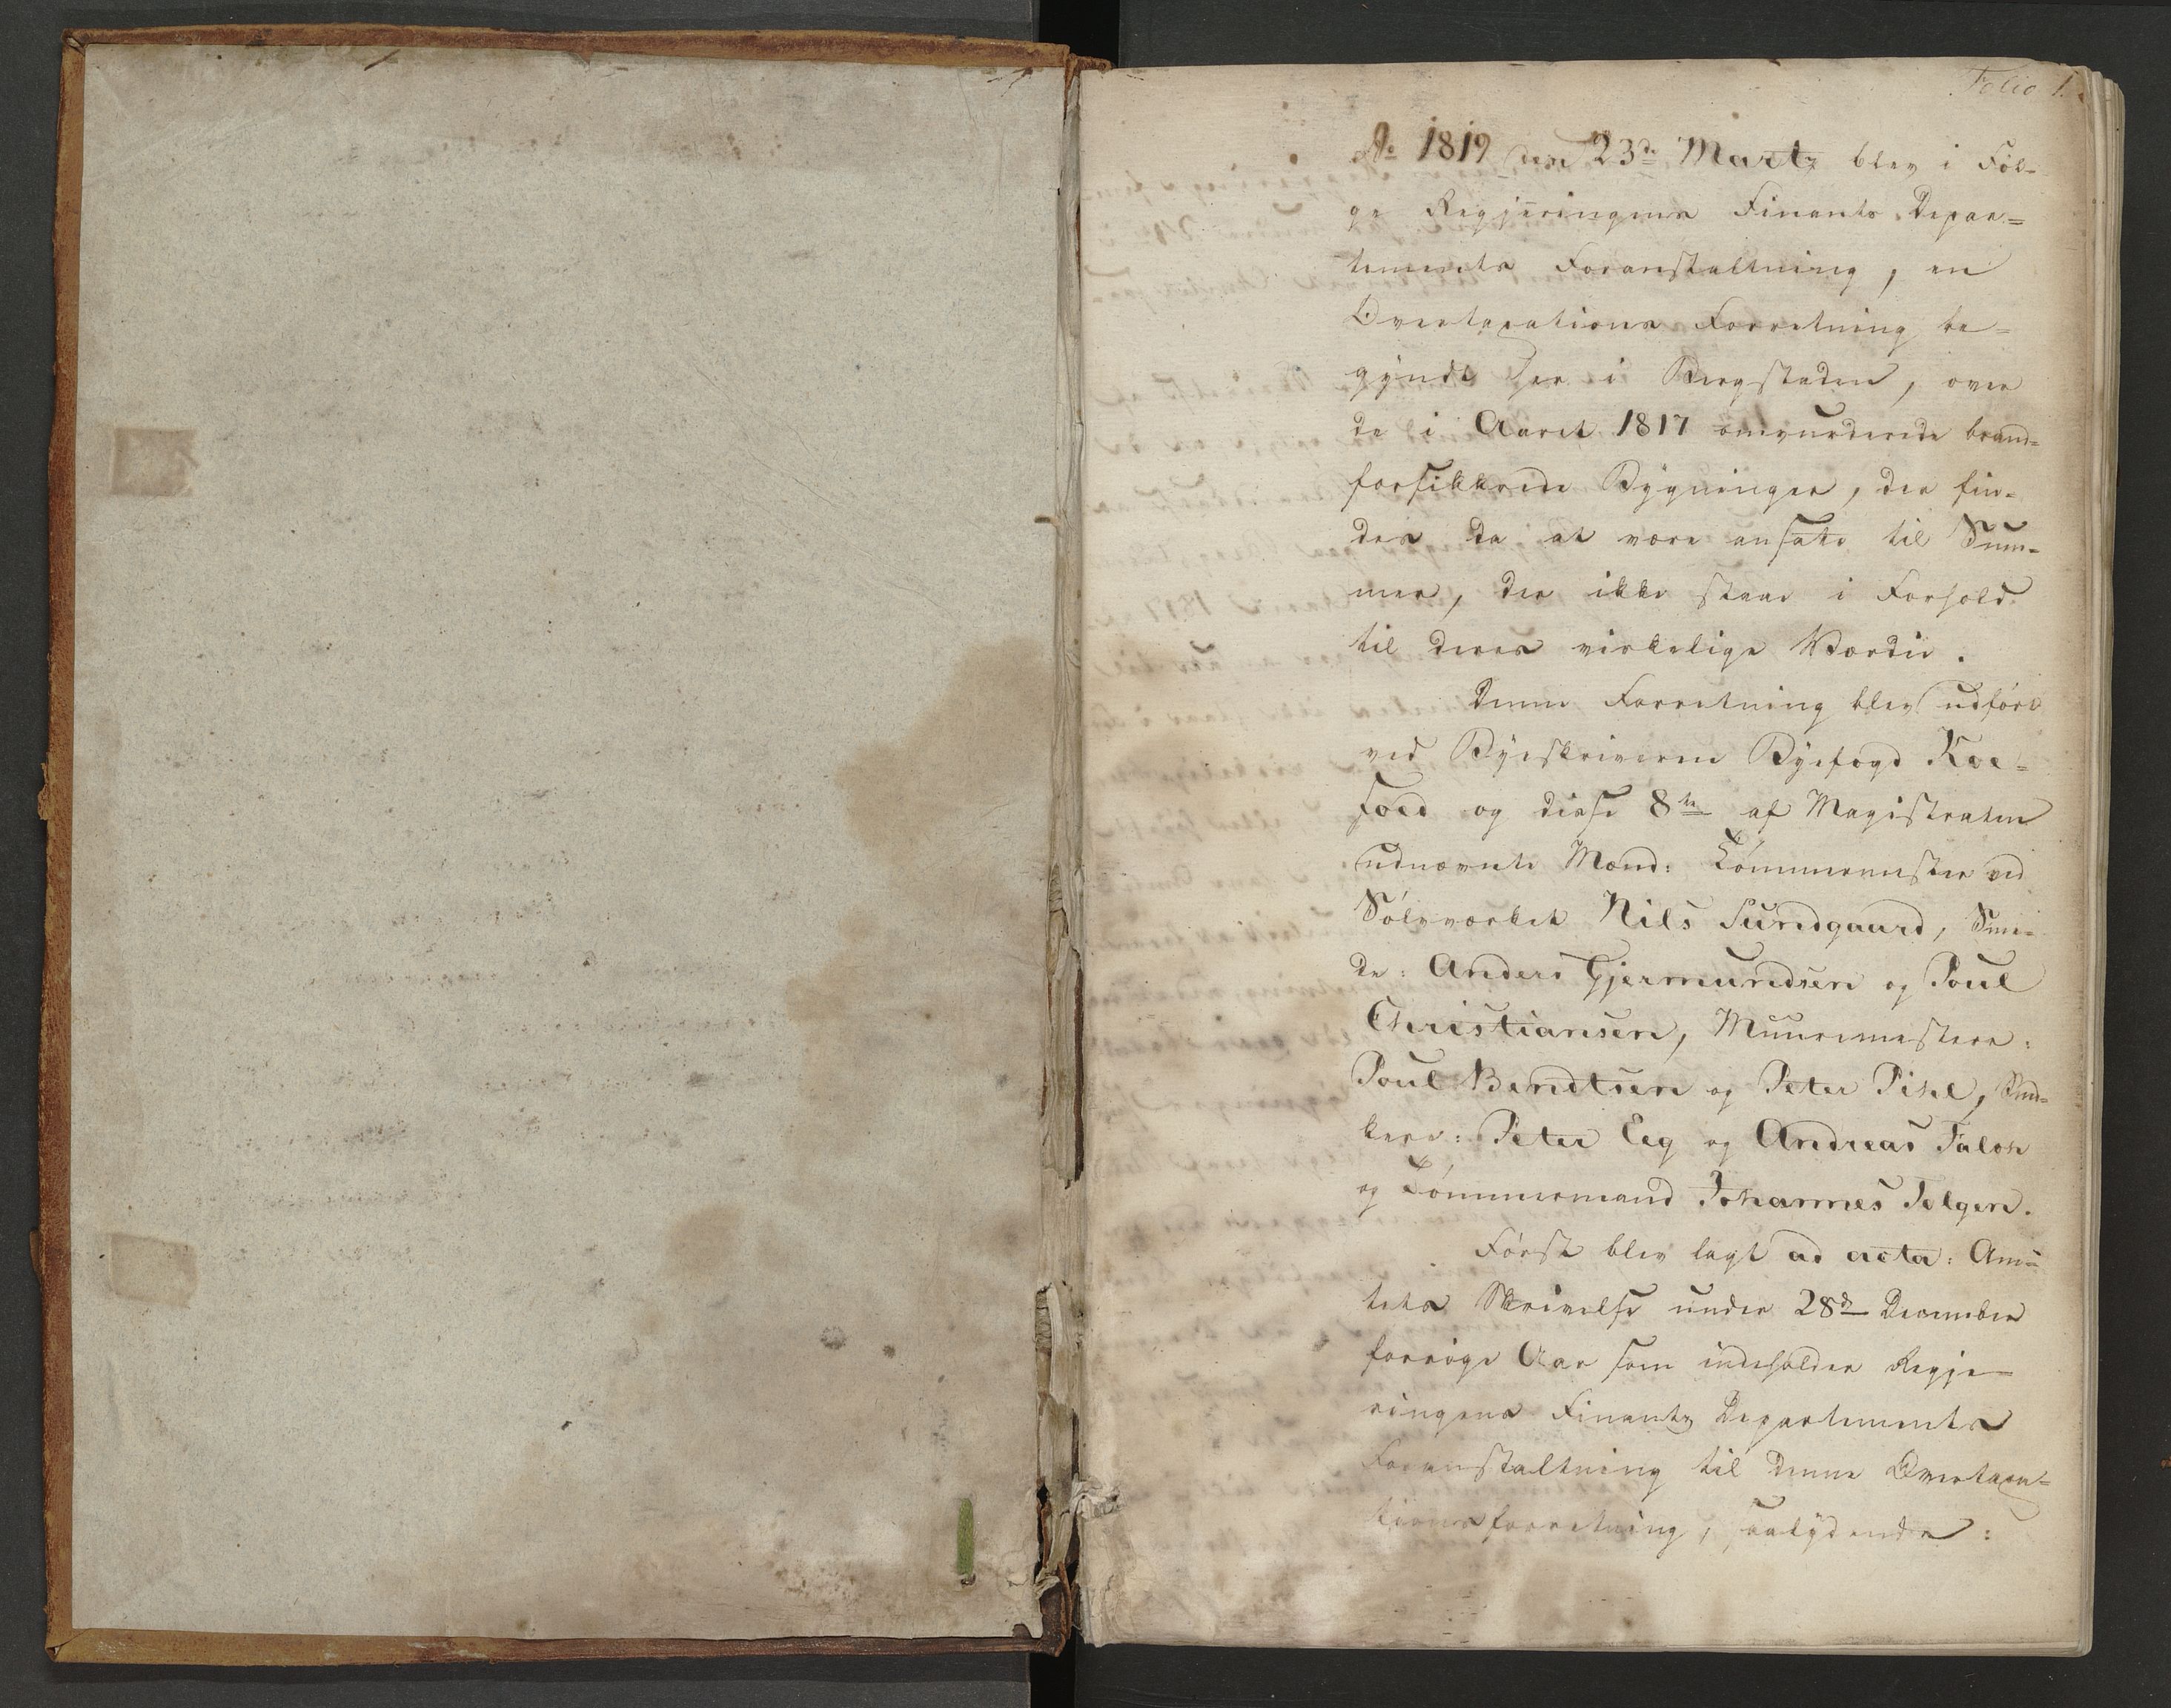 Folio 1.
Ao 1819 den 23de Martz blev i Føl-
ge Regjeringens Finants Depar=
tements Foranstaltning, en
Overtaxations Forretning be=
gyndt her i Bergstaden, over
de i Aaret 1817 omvurderede brand=
forsikkrede Bygninger, der fin-
des da at være ansatte til Sum-
mer, der ikke staae i Forhold
til deres virkelige Værdie.
Denne Forretning blev udført
ved Byeskriveren Byefogd Koe=
foed og disse 8te af Magistraten
udnævnte Mænd: Tømmermester ved
Sølvværket Nils Sundgaard, Sme-
de: Anders Gjermundsen og Poul
Christiansen, Muurmestere:
Poul Bendtsen og Peter Pihl, Sned=
kere: Peter Eeg og Andreas Faloh
og Tømmermand Johannes Tolgen.
Først blev lagt ad acta: Am=
tets Skrivelse under 28de December
forrige Aar som indeholder Regje=
ringens Finantz Departements
Foranstaltning til denne Overtaxa=
tionsforretning, saalydende: